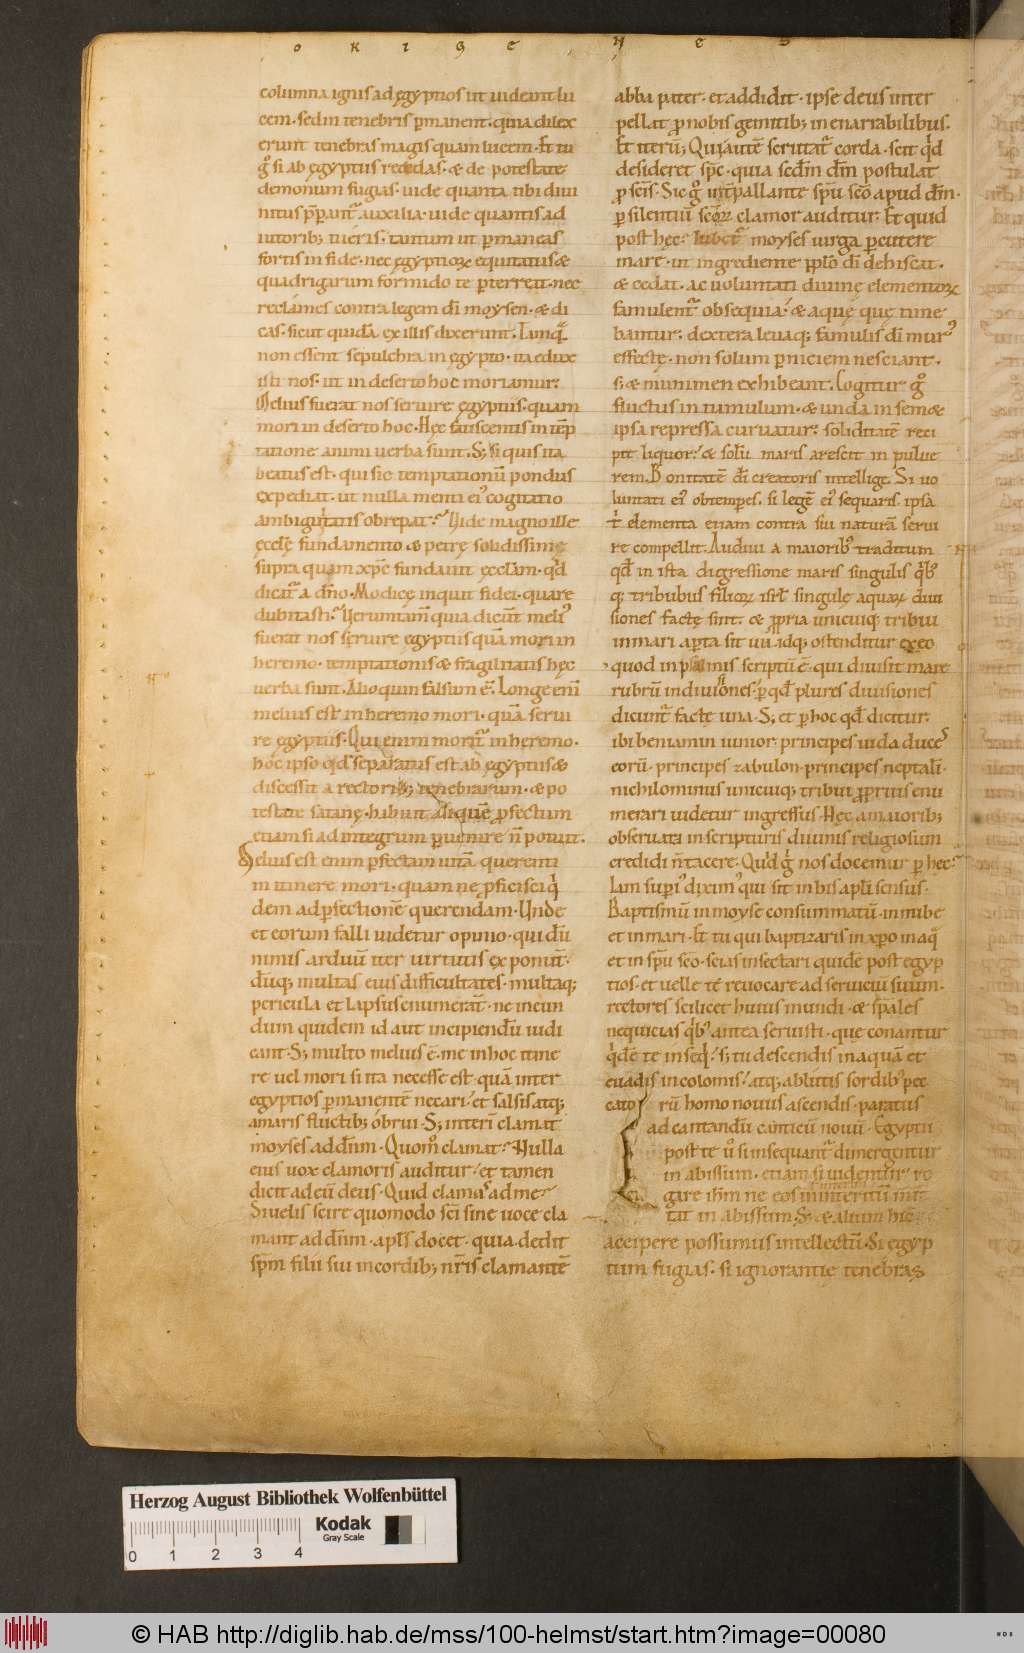 ORIGENES
columna ignis ad ęgyptios ut uiderint lu
cem. sed in tenebris p̄manent. quia dilex
erunt tenebras magis quam lucem. Et tu
gͦ si ab ęgyptus recedas. & de potestate
demonum fugias. uide quanta tibi diui
nitus p̄parant᷑ auxilia. uide quantis ad
iutorib; tueris. tantum ut p̄maneas
fortis in fide. nec ęgyptioꝝ equitatus &
quadrigarum formido te p̄terreat. nec
reclames contra legem dī moysen. & di
cas. sicut quidā ex illis dixerunt. Tanqͣ
non essent sepulchra in ęgypto. ita eduxe
isti nos. ut in deserto hoc moriamur.
Melius fuerat nos seruire ęgyptiis. quam
mori in deserto hoc. Hęc fatiscentis in tēp
tatione animi uerba sunt. S; si quis ita
beatus est. qui sic temptationū pondus
expediat. ut nulla menti ei᷒ cogitatio
ambiguitatis obrepat. Vide magno ille
ęcclę fundamento & petrę solidissimę
supra quam xp̄c fundauit ęcclam. qd̄
dicit᷑ a dn̄o. Modicę inquit fidei. quare
dubitasti. Verumtam̄ quia dicunt meli᷒
fuerat nos seruire egyptiis quā mori in
heremo. temptationis & fragilitatis hęc
uerba sunt. Alioquin falsum ē. Longe eni
melius est in heremo mori. quā serui
re ęgyptiis. Qui enim morit᷑ in heremo.
hoc ipso qd̄ separatus est ab ęgyptiis &
discessit a rectorib; tenebrarum. & po
testate satanę. habuit aliquem p̄fectum
etiam si ad integrum p̄uenire n̄ potuit.
Melius est enim p̄fectam uitā querenti
in itinere mori. quam ne p̄ficisci qͥ
dem ad p̄fectionē querendam. Unde
et eorum falli uidetur opinio. qui dū
nimis arduū iter uirtutis exponunt.
dūq; multas eius difficultates. multaq;
pericula et lapsus enumerant. ne incun
dum quidem id aut incipiendū iudi
cant. S; multo melius ē. me in hoc itine
re uel mori si ita necesse est. quā inter
egyptios p̄manentē necari. et salsis atq;
amaris fluctib; obrui. S; interī clamat
moyses ad dn̄m. Quom̊ clamat? Nulla
eius uox clamoris auditur. et tamen
dicit ad eū deus. Quid clamas ad me?
Si uelis scire quomodo sc̄i sine uoce cla
mant ad dn̄m. apl̄s docet. quia dedit
sp̄m filii sui in cordib; nr̄is clamantē
abba pater. et addidit. ipse deus inter
pellat p̄ nobis gemitib; inenarrabilibus.
Et iterū; Qui autē scrutat᷑ corda. scit qd̄
desideret sp̄c. quia scdm̄ dm̄ postulat
p̄ sc̄is. Sic gͦ int̄pellante sp̄u sc̄o apud dm̄.
p̄ silentiū sc̄oꝝ clamor auditur. Et quid
post hęc? Iubet᷑ moyses uirga p̄cutere
mare. ut ingrediente pp̄lo dī dehiscat.
& cedat. ac uoluntati diuinę elementoꝝ
famulent᷑ obsequia. & aquę quę time
bantur. dextera leuaq; famulis dī mur᷒
effectę. non solum p̄niciem nesciant.
s; & munimen exhibeant. Cogitur gͦ
fluctus in tumulum. & unda in sem&
ipsa repressa curuatur. soliditatē reci
pit liquor. & solū maris arescit in pulue
rem. Bonitatē dī creatoris intellige. Si uo
luntati ei᷒ obtemperes. si legē ei᷒ sequaris. ipsa
tͥ elementa etiam contra sui naturā serui
re compellit. Audiui a maiorib᷒ traditum
qd̄ in ista digressione maris singulis qͥb᷒
q; tribubus filioꝝ isrl̄ singulę aquaꝝ diui
siones factę sint. & p̄pria unicuiq; tribui
in mari ap̄ta sit uia. idq; ostenditur ex eo
quod in psalmis scriptū ē. qui diuisit mare
rubrū in diuisiones. p̄ qd̄ plures diuisiones
dicunt᷑ factę una. S; et p̄ hoc qd̄ dicitur.
ibi beniamin iunior. principes iuda duces
eorū. principes zabulon. principes neptali.
nichilominus unicuiq; tribui p̄prius enu
merari uidetur ingressus. Hęc a maiorib;
obseruata in scripturis diuinis religiosum
credidi n̄ tacere. Quid gͦ nos docemur p̄ hęc?
Iam superi᷒ dixim᷒ qui sit in his apl̄i sensus.
Baptismū in moyse consummatū. in nube
et in mari. Et tu qui baptizaris in xp̄o in aq̄
et in sp̄u sc̄o. scias insectari quidē post egyp
tios. et uelle te reuocare ad seruiciū suum.
rectores scilicet huius mundi. & sp̄ales
nequicias qͥb᷒ antea seruisti. que conantur
qͥdē te inseqͥ. s; tu descendis in aquā et
euadis incolomis. atq; ablutis sordib᷒ pec
catorū homo nouus ascendis. paratus
ad cantandū canticū nouū. Egyptii
post te u̇ si insequant᷑ dimergentur
in abissum. etiam si uidentur ro
gare ihm̄ ne eos in interitū mit
tat in abissum. S; & alium hic
accipere possumus intellectū. Si egyp
tum fugias. si ignorantię tenebras
Herzog August Bibliothek Wolfenbüttel
Kodak
Gray Scale
0 1 2 3 4
© HAB http://diglib.hab.de/mss/100-helmst/start.htm?image=00080